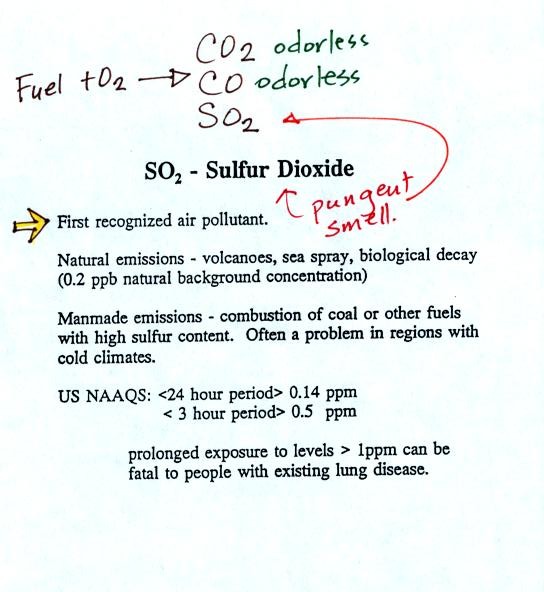 CO2 odorless
Fuel + O2 → CO odorless
SO2
SO₂ - Sulfur Dioxide
pungent
smell.
First recognized air pollutant.
Natural emissions - volcanoes, sea spray, biological decay
(0.2 ppb natural background concentration)
Manmade emissions - combustion of coal or other fuels
with high sulfur content.  Often a problem in regions with
cold climates.
US NAAQS: <24 hour period> 0.14 ppm
< 3 hour period> 0.5 ppm
prolonged exposure to levels > 1ppm can be
fatal to people with existing lung disease.